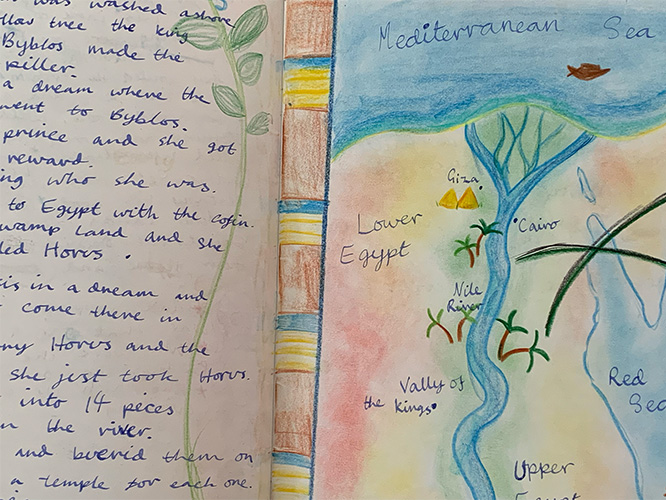 was washed ashore
tree the king
Byblos made the
piller.
a dream where the
went to Byblos.
prince and she got
reward.
ing who she was.
to Egypt with the cofin.
swamp Land and she
led Horus.
is in a dream and
come there in
my Horus and the
she just took Horus.
into 14 peces
in the river.
and buerid them on
a temple for each one.
Mediterranean Sea
Giza
Lower
Egypt
Cairo
Nile
River
Vally of
the Kings
Red
Sea
Upper
Egypt